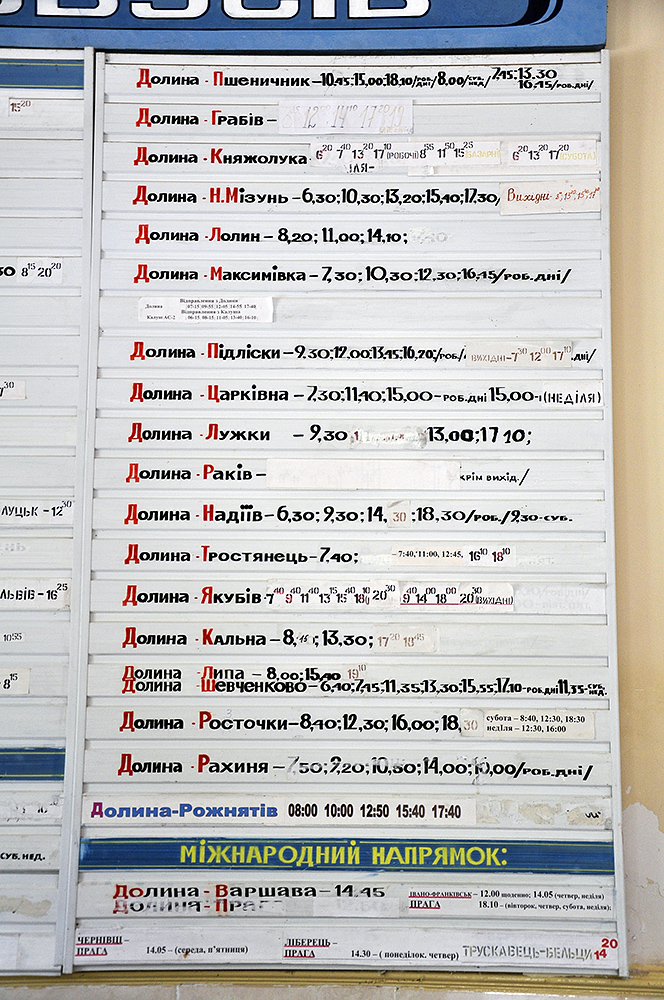 15²⁰
Долина - Пшеничник-10,45;15,00;18,10/роб.дні/8,00/суб. нед./7,45;13.30 16,45/роб.дні/
Долина - Грабів-
Долина - Княжолука 6²⁰ 7⁴⁰ 13²⁰ 17¹⁰(РОБОЧІ) 8⁵⁵ 11⁵⁰ 15²⁵ 6²⁰ 13²⁰ 17²⁰
Долина - Н.Мізунь-6,30;10,30;13,20;15,40;17.30/ Вихідні-
Долина - Лолин-8,20; 11,00; 14,10;
Долина - Максимівка-7,30; 10,30; 12,30;16,45/роб.дні/
8¹⁵ 20²⁰
Відправлення з Долини
Долина :07-15; 09-55; 12-05; 14-55; 17-40;
Відправлення з Калуша
Калуш АС-2 : 06-15; 08-15; 11-05; 13-40; 16-10;
Долина - Підліски-9.30;12.00;13.45;16,20;/роб./ ВИХІДНІ-7³⁰ 12⁰⁰ 17¹⁰ .дні/
Долина - Царківна-7.30;11,40;15,00-роб.дні 15,00-(НЕДІЛЯ)
Долина - Лужки -9,30 13,00;17 10;
Долина - Раків- крім вихід./
Долина - Надіїв-6,30; 9,30; 14, 30 ;18,30/роб./9,30-суб.
ЛУЦЬК-12³⁰
Долина - Тростянець-7,40; -7:40, 11:00, 12:45, 16¹⁰ 18¹⁰
Долина - Якубів-7⁴⁰ 9⁴⁰ 11⁴⁰ 13⁴⁰ 15⁴⁰ 18⁰⁰ 20³⁰ 9⁴⁰ 14⁰⁰ 18⁰⁰ 20³⁰(ВИХІДНІ)
ЛЬВІВ-16²⁵
Долина - Кальна-8, 15; 13,30; 17²⁰ 18⁴⁵
10⁵⁵
Долина - Липа - 8,00;15,40 19¹⁰
Долина - Шевченково-6,40;7,45;11,35;13,30;15,55;17,10-роб.дні 11,35-суб. нед.
8¹⁵
Долина - Росточки-8,40;12,30; 16,00; 18, 30 субота – 8:40, 12:30, 18:30
неділя – 12:30, 16:00
Долина - Рахиня-7,50;9,20;10,50; 14,00; 10,00/роб.дні/
Долина-Рожнятів 08:00 10:00 12:50 15:40 17:40
СУБ. НЕД.
МІЖНАРОДНИЙ НАПРЯМОК:
Долина-Варшава-14.45
Долина-Прага
ІВАНО-ФРАНКІВСЬК – 12.00 щоденно; 14.05 (четвер, неділя)
ПРАГА 18.10 – (вівторок, четвер, субота, неділя);
ЧЕРНІВЦІ –
ПРАГА 14.05 – (середа, п'ятниця)
ЛІБЕРЕЦЬ –
ПРАГА 14.30 – ( понеділок, четвер)
ТРУСКАВЕЦЬ-БЕЛЬЦИ 14²⁰